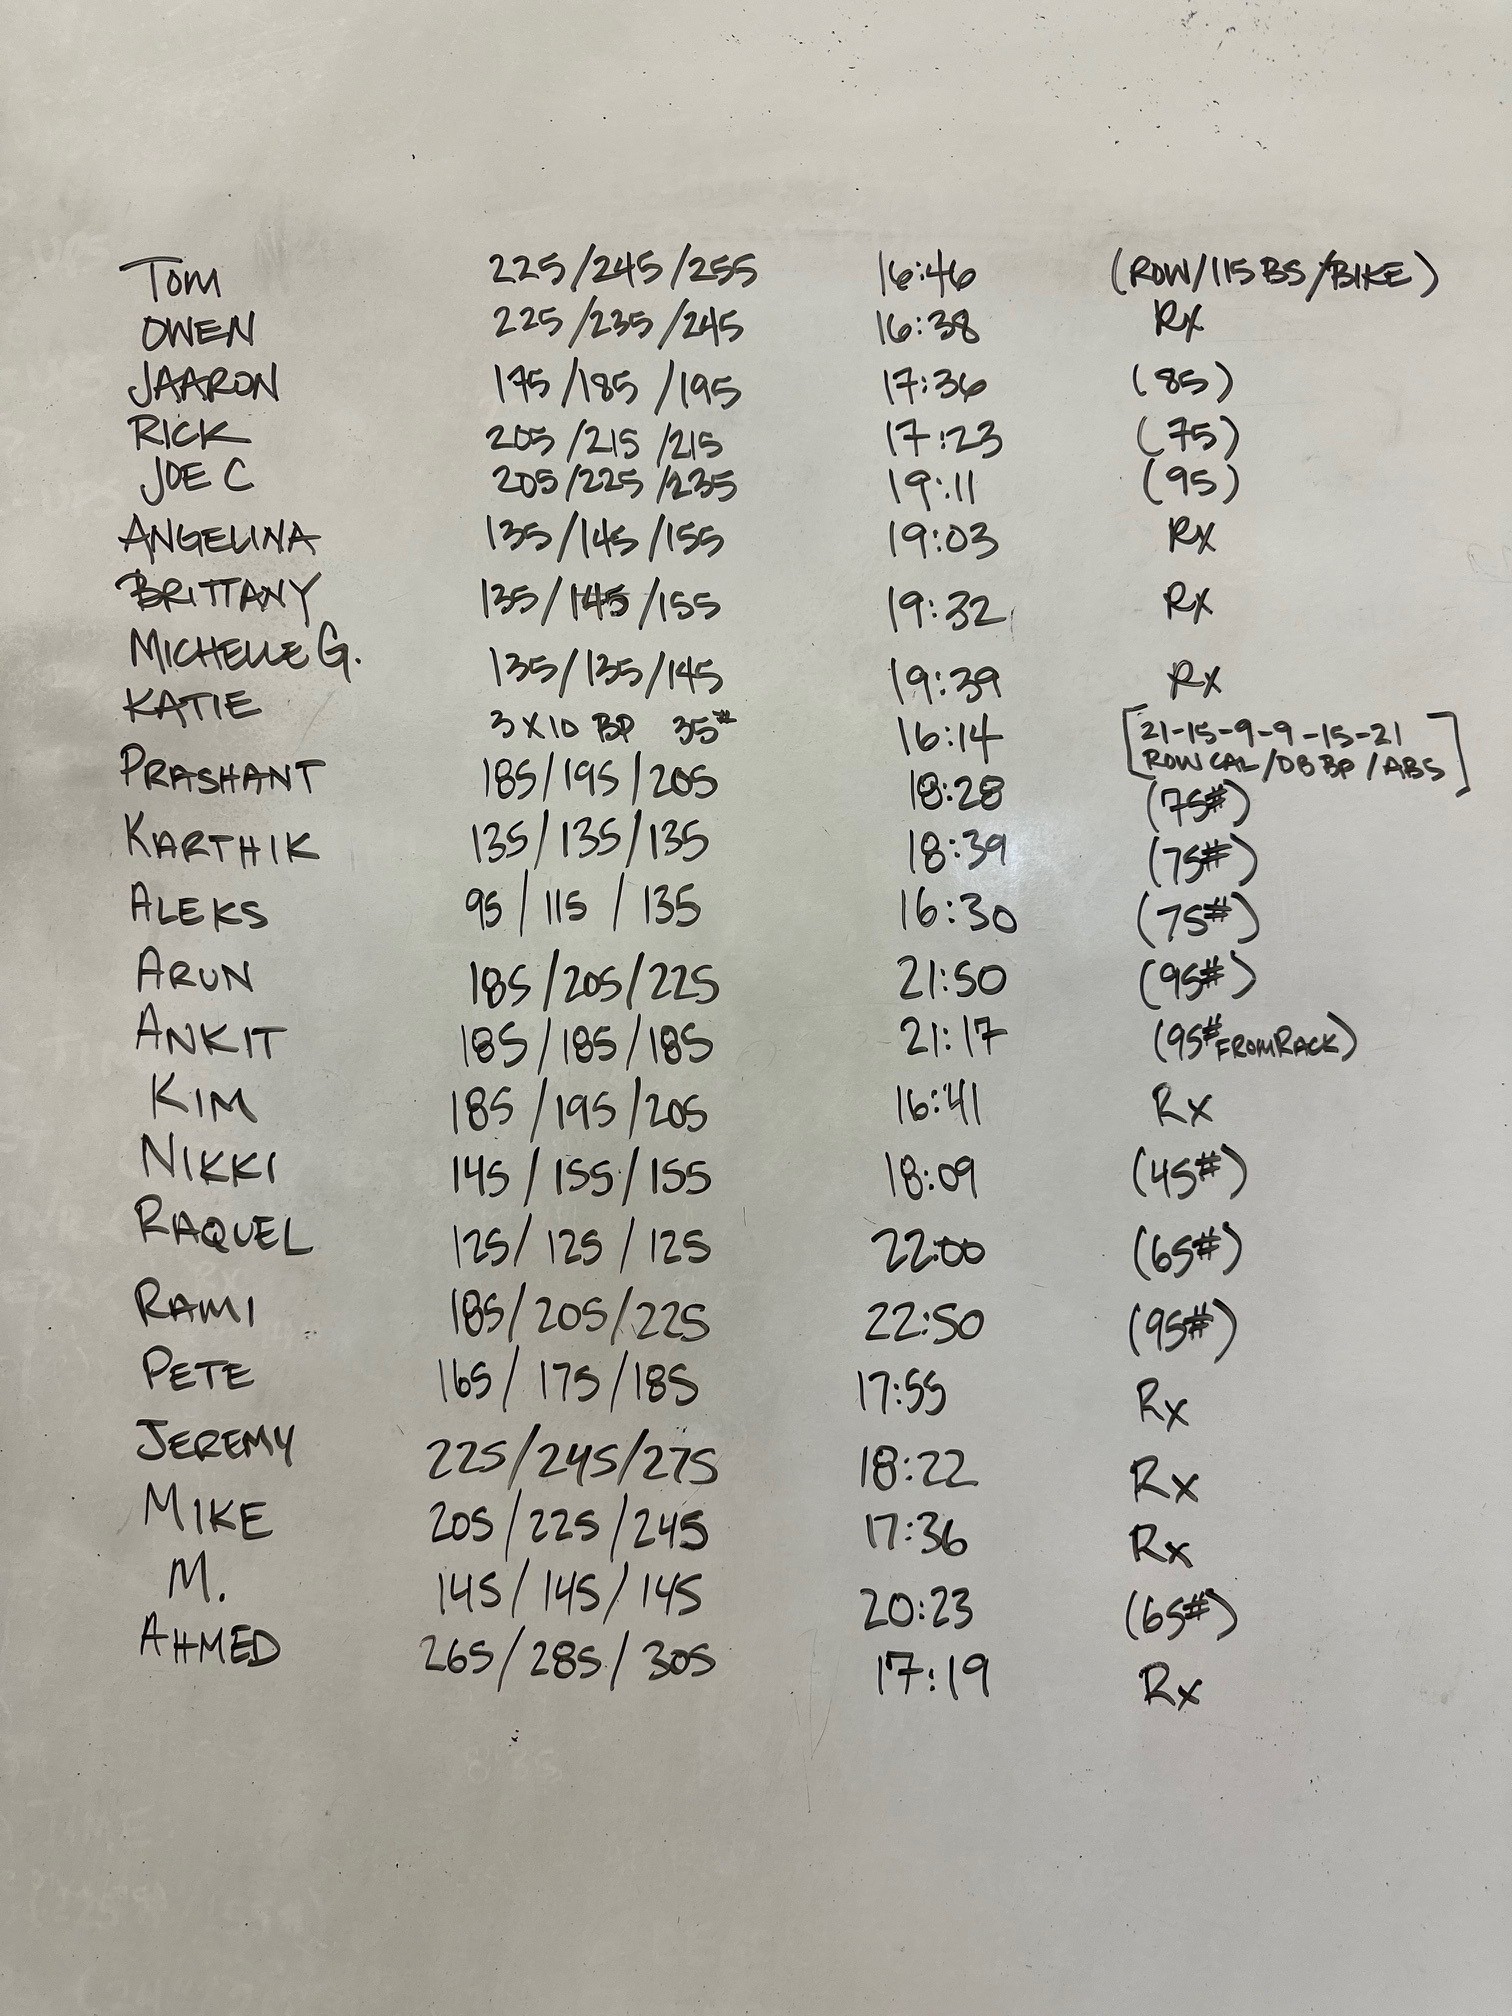 Tom 225/245/255 16:46 (ROW/115 BS/BIKE)
OWEN 225/235/245 16:38 Rx
JAARON 175/185/195 17:36 (85)
RICK 205/215/215 17:23 (75)
JOE C 205/225/235 19:11 (95)
ANGELINA 135/145/155 19:03 Rx
BRITTANY 135/145/155 19:32 Rx
MICHELLE G. 135/135/145 19:39 Rx
KATIE 3 X 10 BP 35# 16:14 [21-15-9-9-15-21
ROW CAL/DB BP/ABS]
PRASHANT 185/195/205 18:28 (75#)
KARTHIK 135/135/135 18:39 (75#)
ALEKS 95/115/135 16:30 (75#)
ARUN 185/205/225 21:50 (95#)
ANKIT 185/185/185 21:17 (95# FROM RACK)
KIM 185/195/205 16:41 Rx
NIKKI 145/155/155 18:09 (45#)
RAQUEL 125/125/125 22:00 (65#)
RAMI 185/205/225 22:50 (95#)
PETE 165/175/185 17:55 Rx
JEREMY 225/245/275 18:22 Rx
MIKE 205/225/245 17:36 Rx
M. 145/145/145 20:23 (65#)
AHMED 265/285/305 17:19 Rx